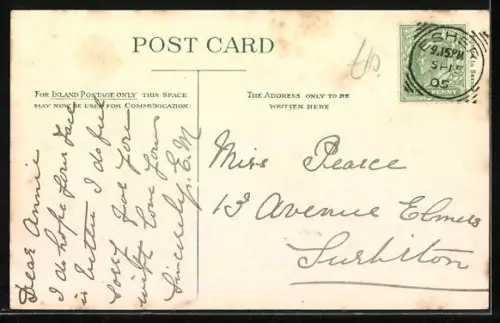 POST CARD
FOR INLAND POSTAGE ONLY THIS SPACE
MAY NOW BE USED FOR COMMUNICATION
THE ADDRESS ONLY TO BE
WRITTEN HERE
ESHER
9.15PM
05
PENNY
Dear Annie
I do hope your face
is better I do feel
sorry for you
with love from
Sincerely, E.M
Miss Pearce
13 Avenue Elmers
Surbiton